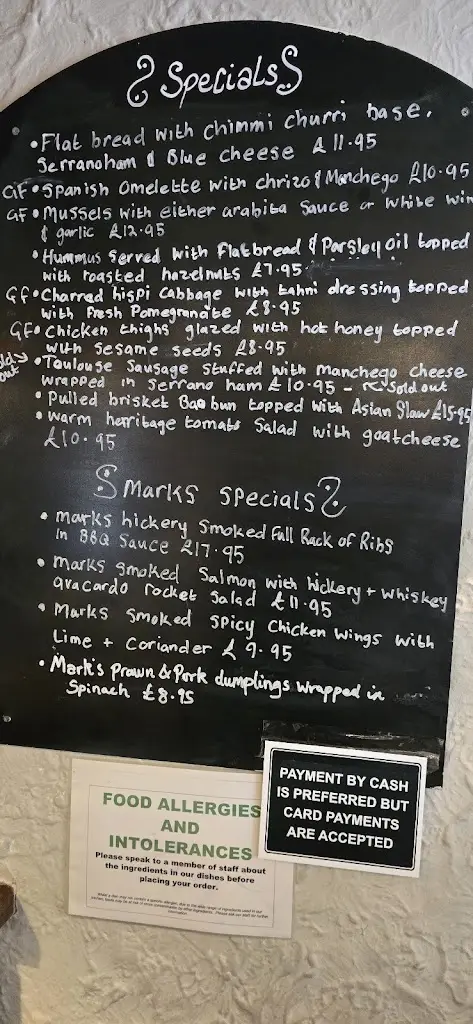 Specials
• Flat bread with chimmi churri base.
Serranoham & Blue cheese £11.95
GF • Spanish Omelette with chrizo & Manchego £10.95
GF • Mussels with either arabita Sauce or White win
& garlic £12.95
• Hummus Served with Flatbread & Parsley oil topped
with roasted hazelnuts £7.95
GF • Charred hispi Cabbage with tahni dressing topped
with Fresh Pomegranate £8.95
GF • Chicken thighs glazed with hot honey topped
with Sesame seeds £8.95
Sold out • Toulouse Sausage stuffed with Manchego cheese
wrapped in Serrano ham £10.95 - Sold out
• Pulled brisket Bao bun topped with Asian Slaw £15.95
• Warm herritage tomato Salad with goatcheese
£10.95
Marks Specials
• Marks hickery Smoked Full Rack of Ribs
in BBQ Sauce £17.95
• Marks smoked Salmon with hickery + whiskey
avacardo rocket Salad £11.95
• Marks Smoked Spicy Chicken wings with
Lime + Coriander £9.95
• Mark's Prawn & Pork dumplings wrapped in
Spinach £8.95
PAYMENT BY CASH
IS PREFERRED BUT
CARD PAYMENTS
ARE ACCEPTED
FOOD ALLERGIES
AND
INTOLERANCES
Please speak to a member of staff about
the ingredients in our dishes before
placing your order.